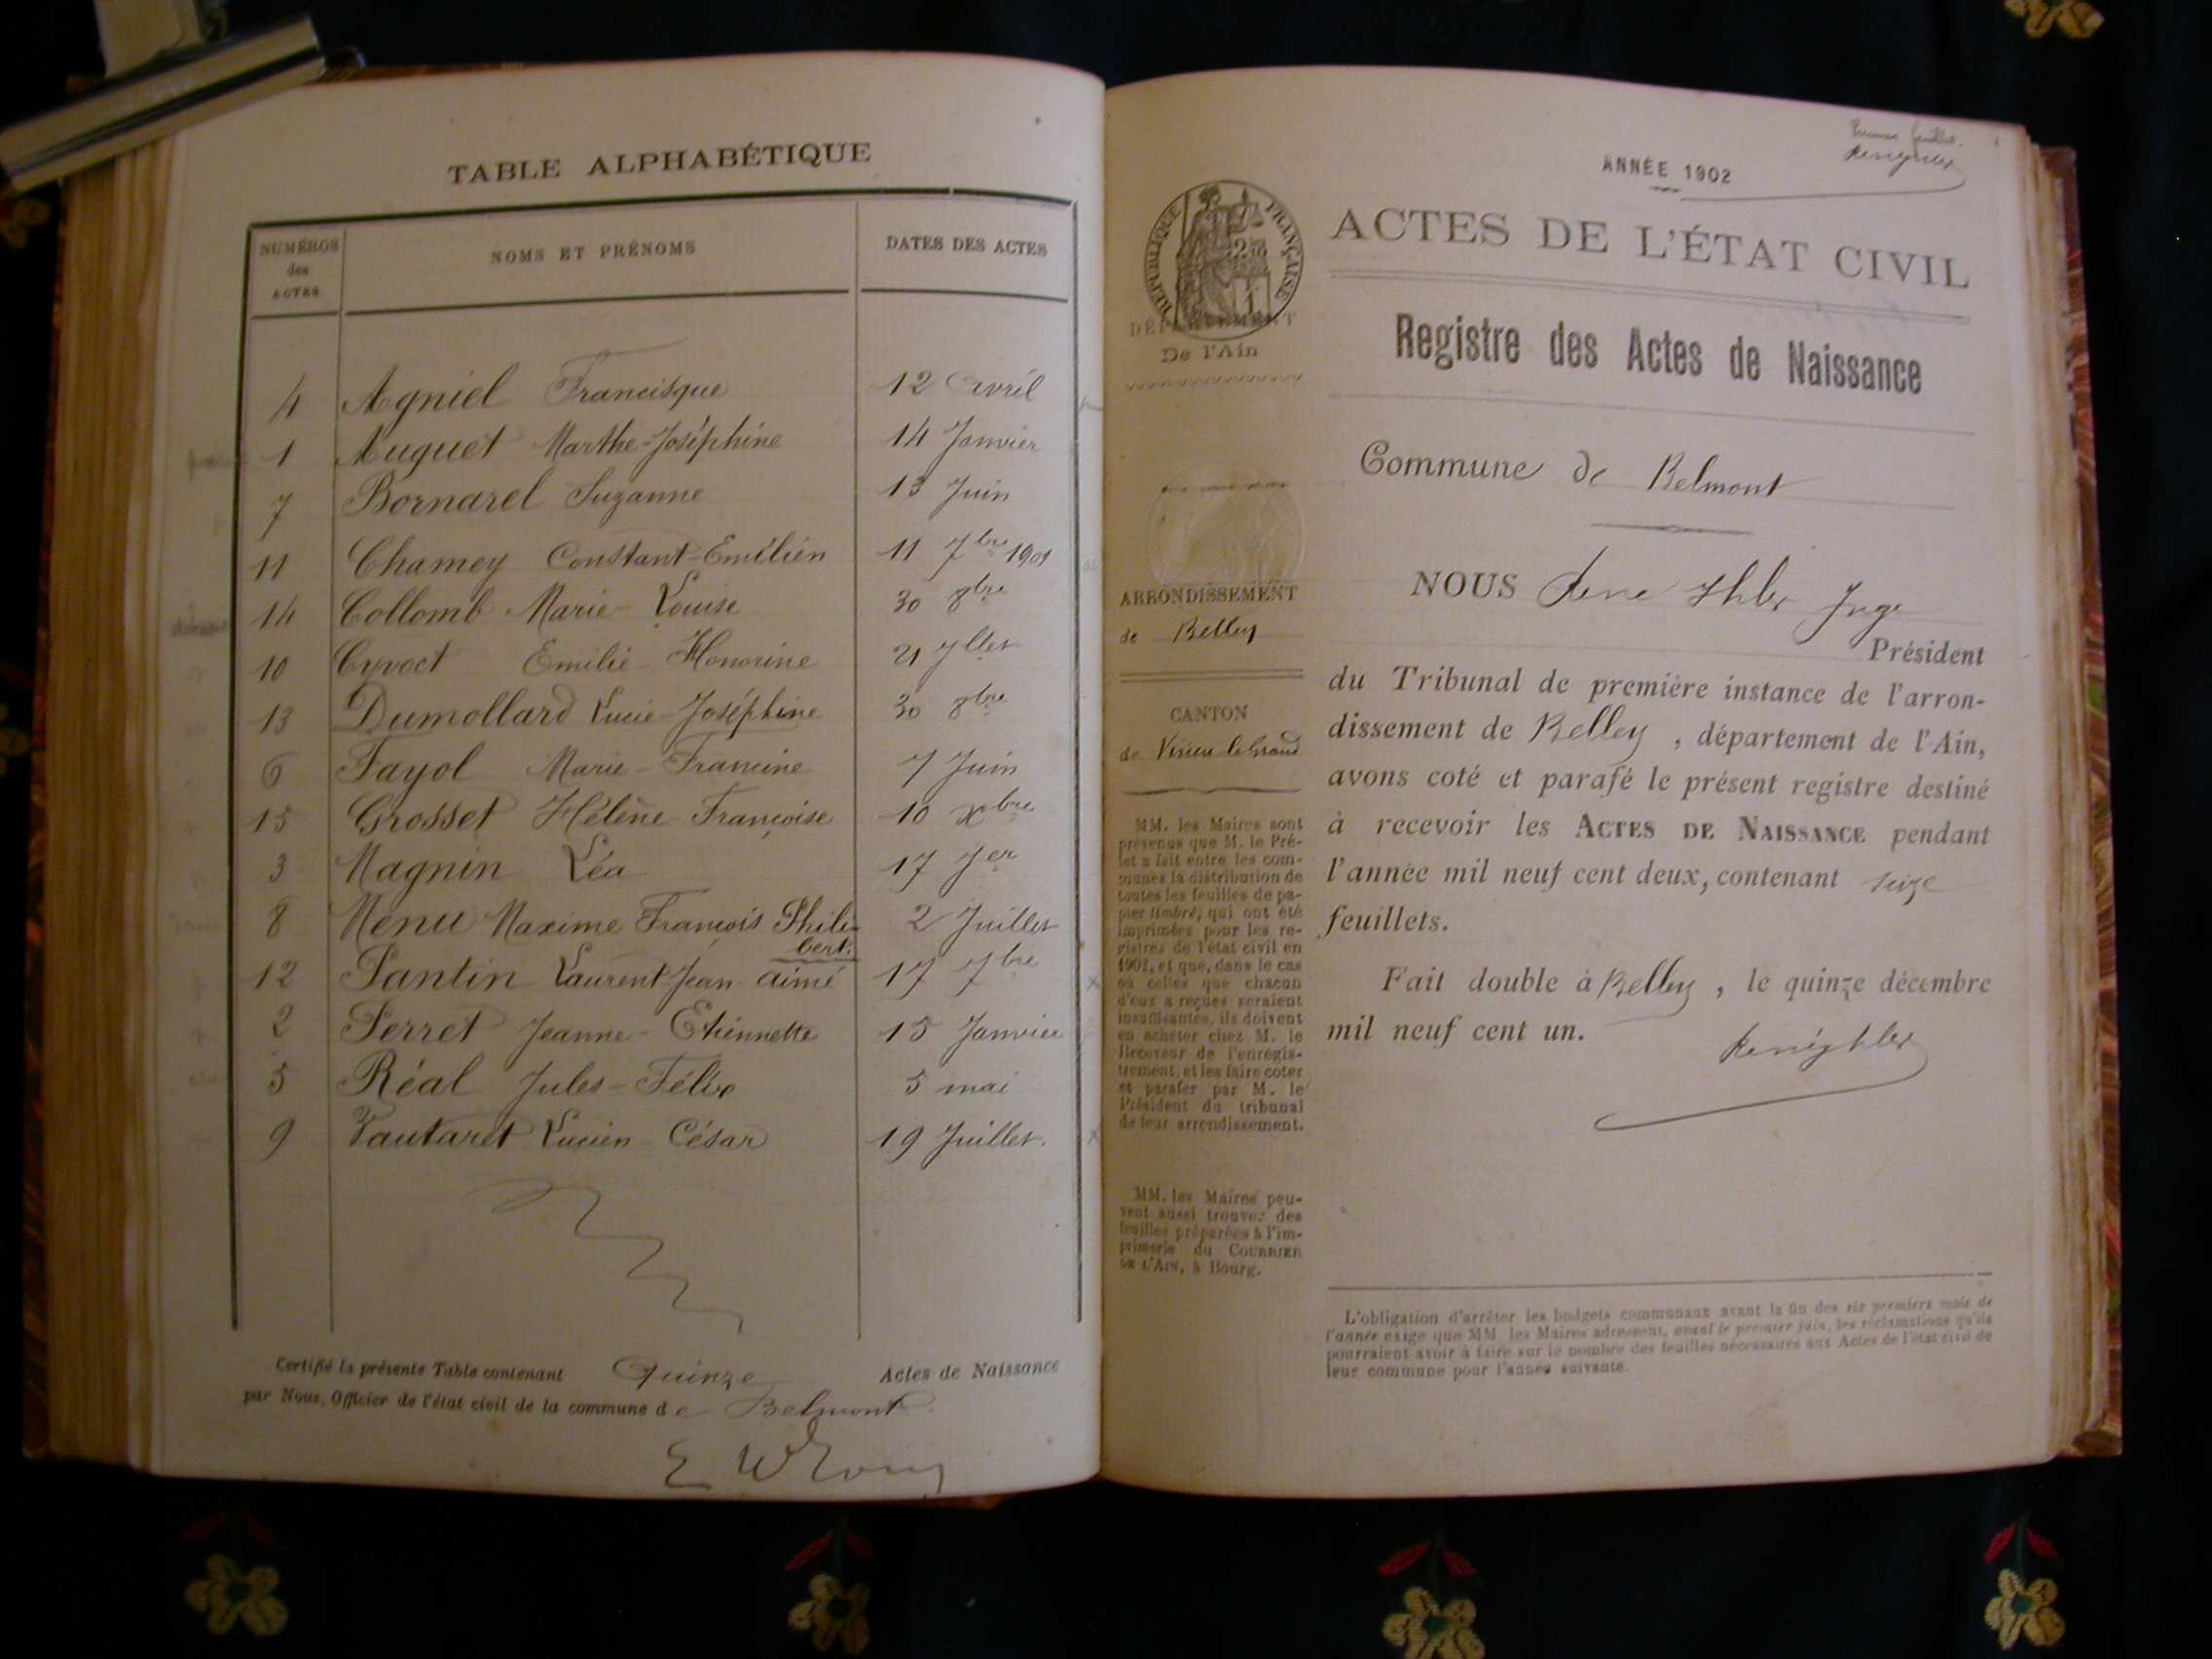 TABLE ALPHABÉTIQUE
NUMÉROS des ACTES NOMS ET PRÉNOMS DATES DES ACTES
4 Agniel Francisque 12 avril
1 Auguet Marthe-Joséphine 14 Janvier
7 Bornarel Suzanne 13 Juin
11 Chamey Constant-Emilien 11 7bre 1901
14 Collomb Marie-Louise 30 8bre
10 Cyvoct Emilie-Honorine 21 Jllet
13 Dumollard Lucie-Joséphine 30 8bre
6 Fayol Marie-Francine 7 Juin
15 Grosset Hélène-Françoise 10 xbre
3 Magnin Léa 17 Jer
8 Menu Maxime François Phili-
bert.
12 Pantin Laurent-Jean aimé 17 7bre
2 Juillet
2 Perret Jeanne-Etiennette 15 Janvier
5 Réal Jules-Félix 5 mai
9 Tautaret Lucien-César 19 Juillet.
Certifié la présente Table contenant Quinze Actes de Naissance
par Nous, Officier de l'état civil de la commune de Belmont.
ANNÉE 1902
RÉPUBLIQUE FRANÇAISE
ACTES DE L'ÉTAT CIVIL
DÉPARTEMENT
De l'Ain
Registre des Actes de Naissance
Commune de Belmont
ARRONDISSEMENT
de Belley
CANTON
de Virieu-le-Grand
MM. les Maires sont
prévenus que M. le Pré-
fet a fait entre les com-
munes la distribution de
toutes les feuilles de pa-
pier timbré, qui ont été
imprimées pour les re-
gistres de l'état civil en
1902, et que, dans le cas
où celles que chacun
d'eux a reçues seraient
insuffisantes, ils doivent
en acheter chez M. le
Receveur de l'enregis-
trement, et les faire coter
et parafer par M. le
Président du tribunal
de leur arrondissement.
MM. les Maires peu-
vent aussi trouver des
feuilles préparées à l'im-
primerie du COURRIER
DE L'AIN, à Bourg.
NOUS René Juge
Président
du Tribunal de première instance de l'arron-
dissement de Belley, département de l'Ain,
avons coté et parafé le présent registre destiné
à recevoir les ACTES DE NAISSANCE pendant
l'année mil neuf cent deux, contenant seize
feuillets.
Fait double à Belley, le quinze décembre
mil neuf cent un.
L'obligation d'arrêter les budgets communaux avant la fin des six premiers mois de
l'année exige que MM. les Maires adressent, avant le premier juin, les réclamations qu'ils
pourraient avoir à faire sur le nombre des feuilles nécessaires aux Actes de l'état civil de
leur commune pour l'année suivante.